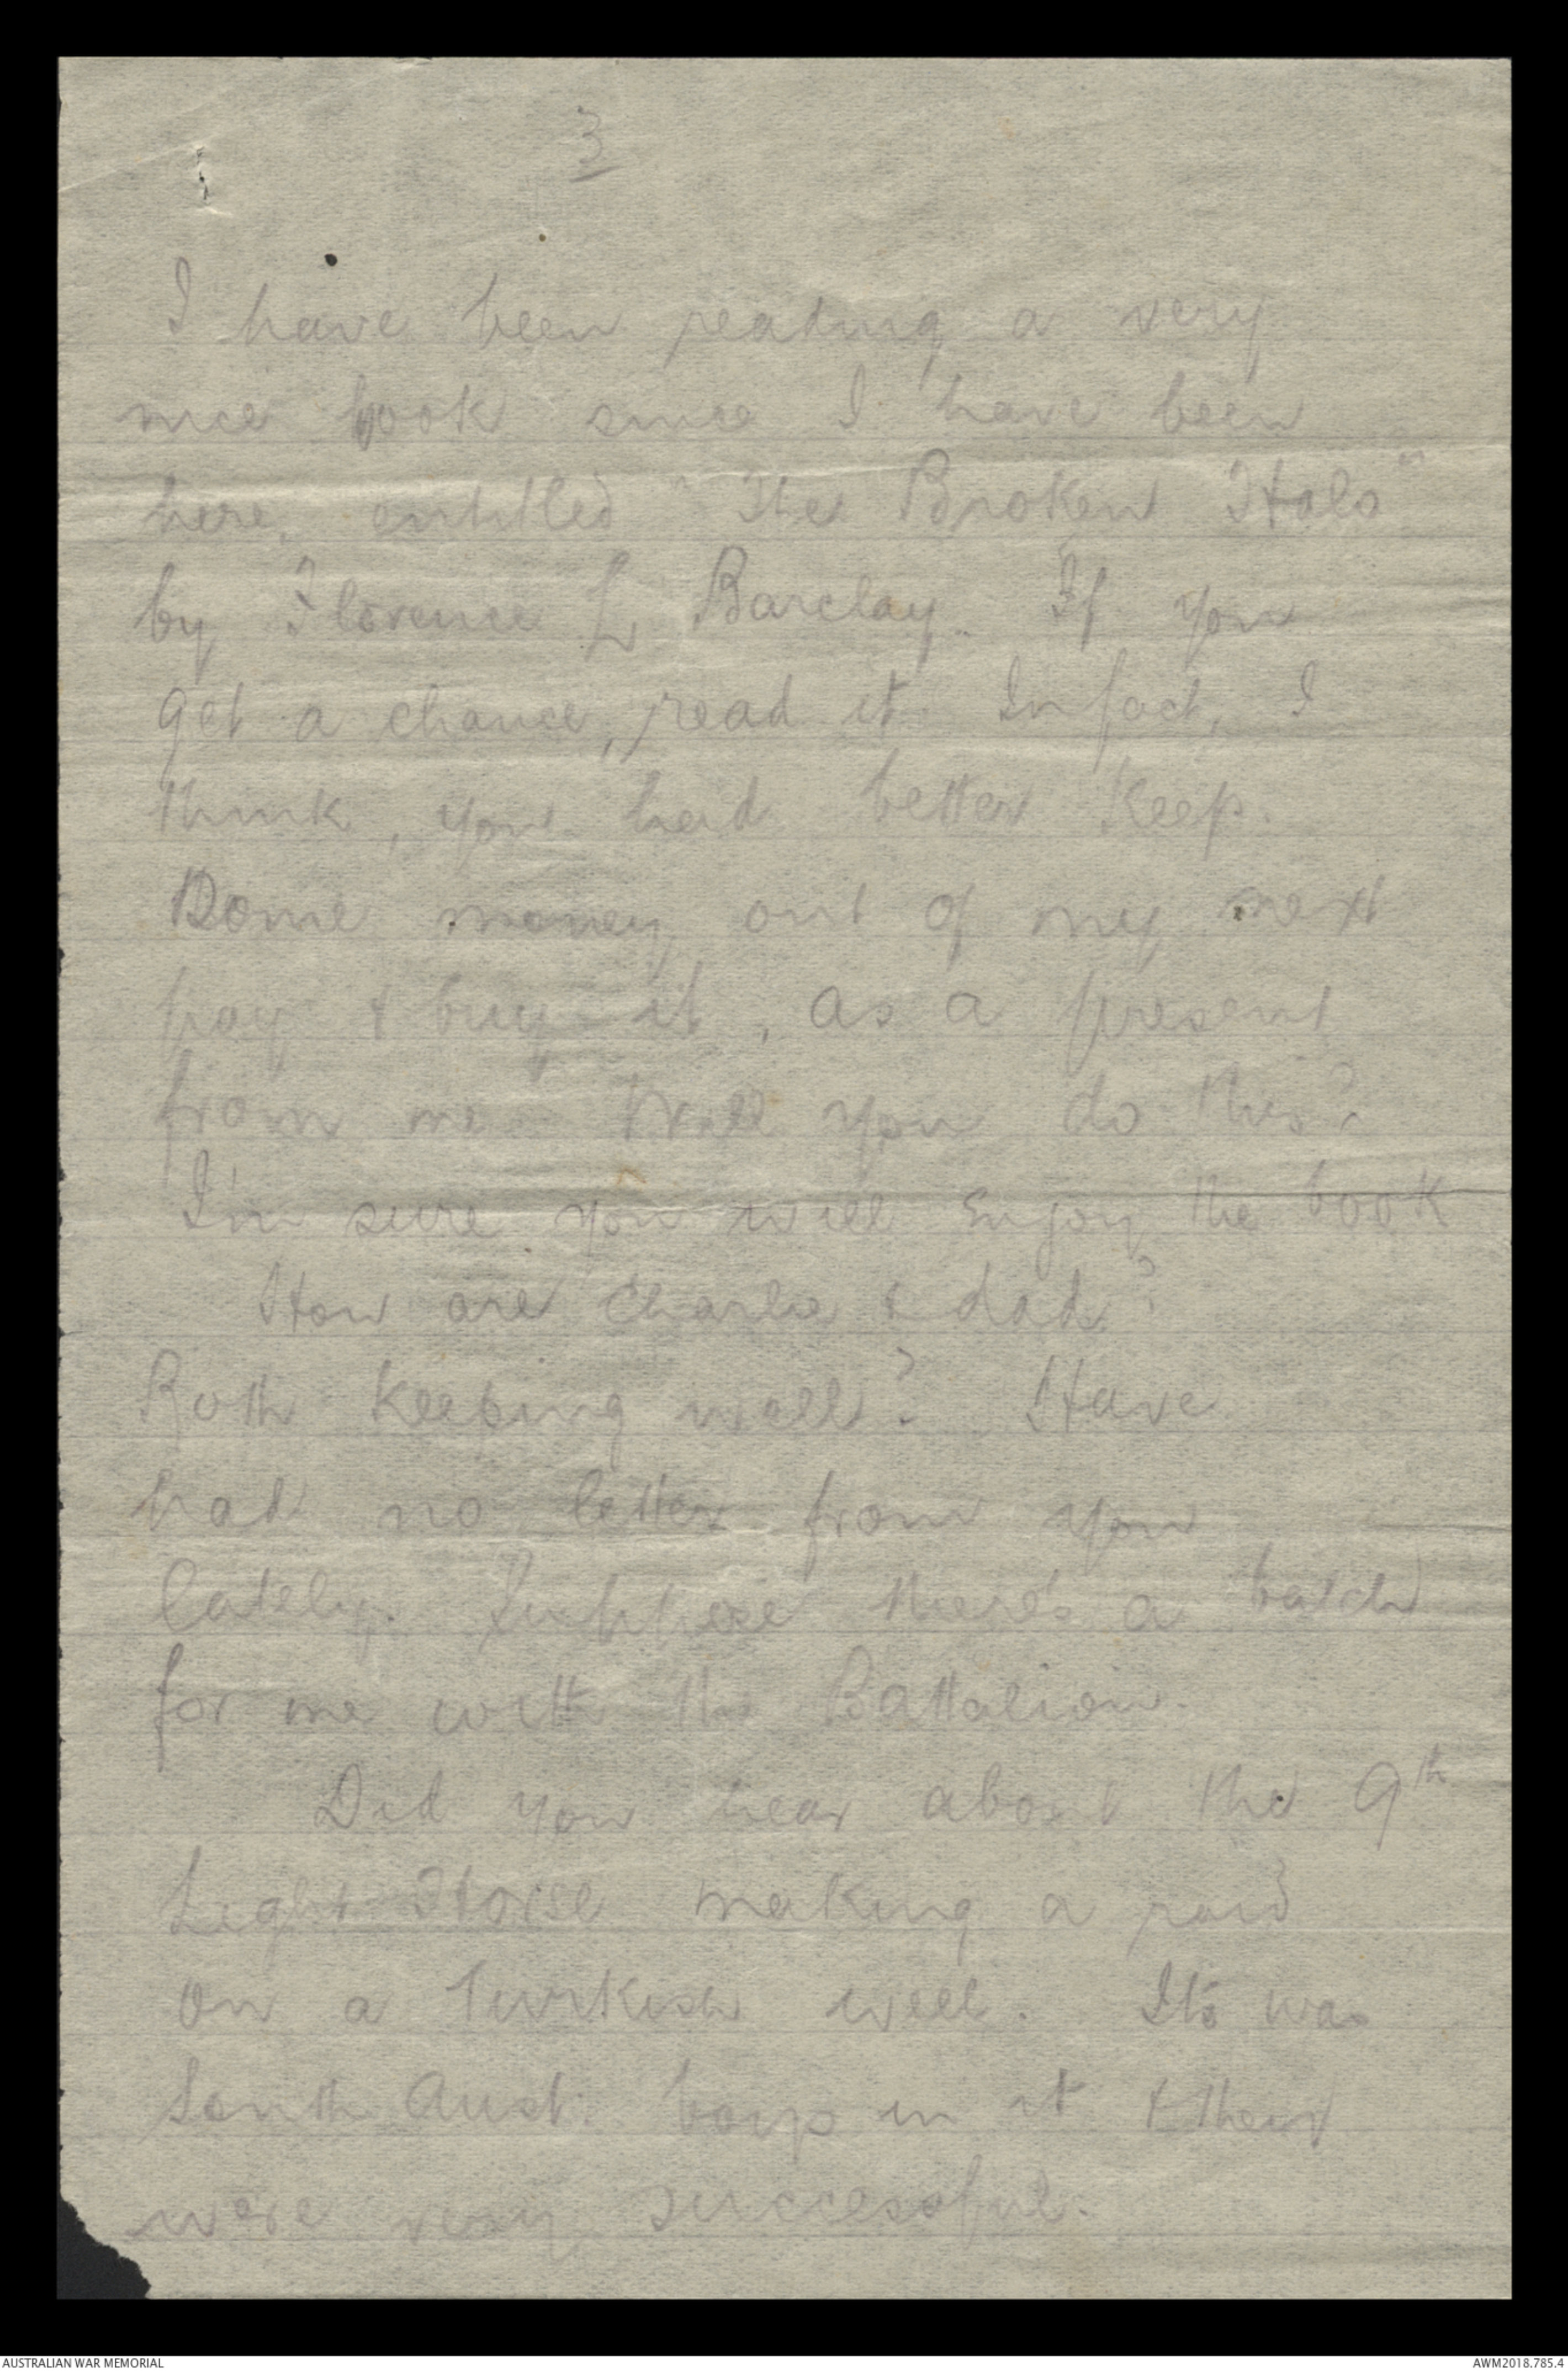 3
I have been reading a very
nice book since I have been
here, entitled "The Broken Halo"
by Florence L Barclay. If you
get a chance, read it. In fact, I
think, you had better keep.
some money out of my next
pay & buy it, as a present
from me. Will you do this?
I'm sure you will enjoy the book
How are Charlie & dad?
Both keeping well? Have
had no letter from you
lately. Suppose there's a batch
for me with the Battalion.
Did you hear about the 9th
Light Horse making a raid
on a Turkish well. It's was
South Aust. boys in it & they
were very successful.
AUSTRALIAN WAR MEMORIAL
AWM2018.785.4